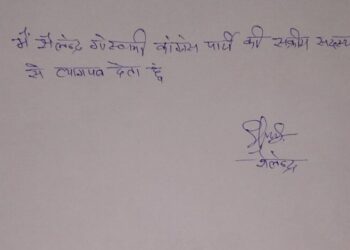 मैं शैलेन्द्र गोस्वामी कांग्रेस पार्टी की सक्रीय सदस्य
से त्यागपत्र देता हूं
शैलेन्द्र